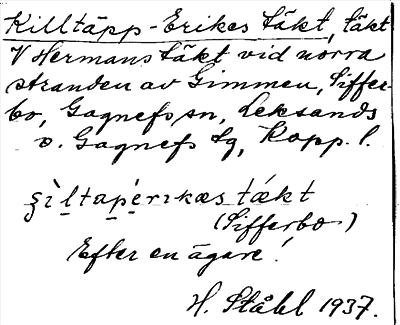 Killtäpp-Erikes täkt, täkt
V Hermans täkt vid norra
stranden av Gimmen, Siffer-
bo, Gagnefs sn, Leksands
o. Gagnefs tg, Kopp. l.
(Sifferbo)
Efter en ägare!
H. Ståhl 1937.